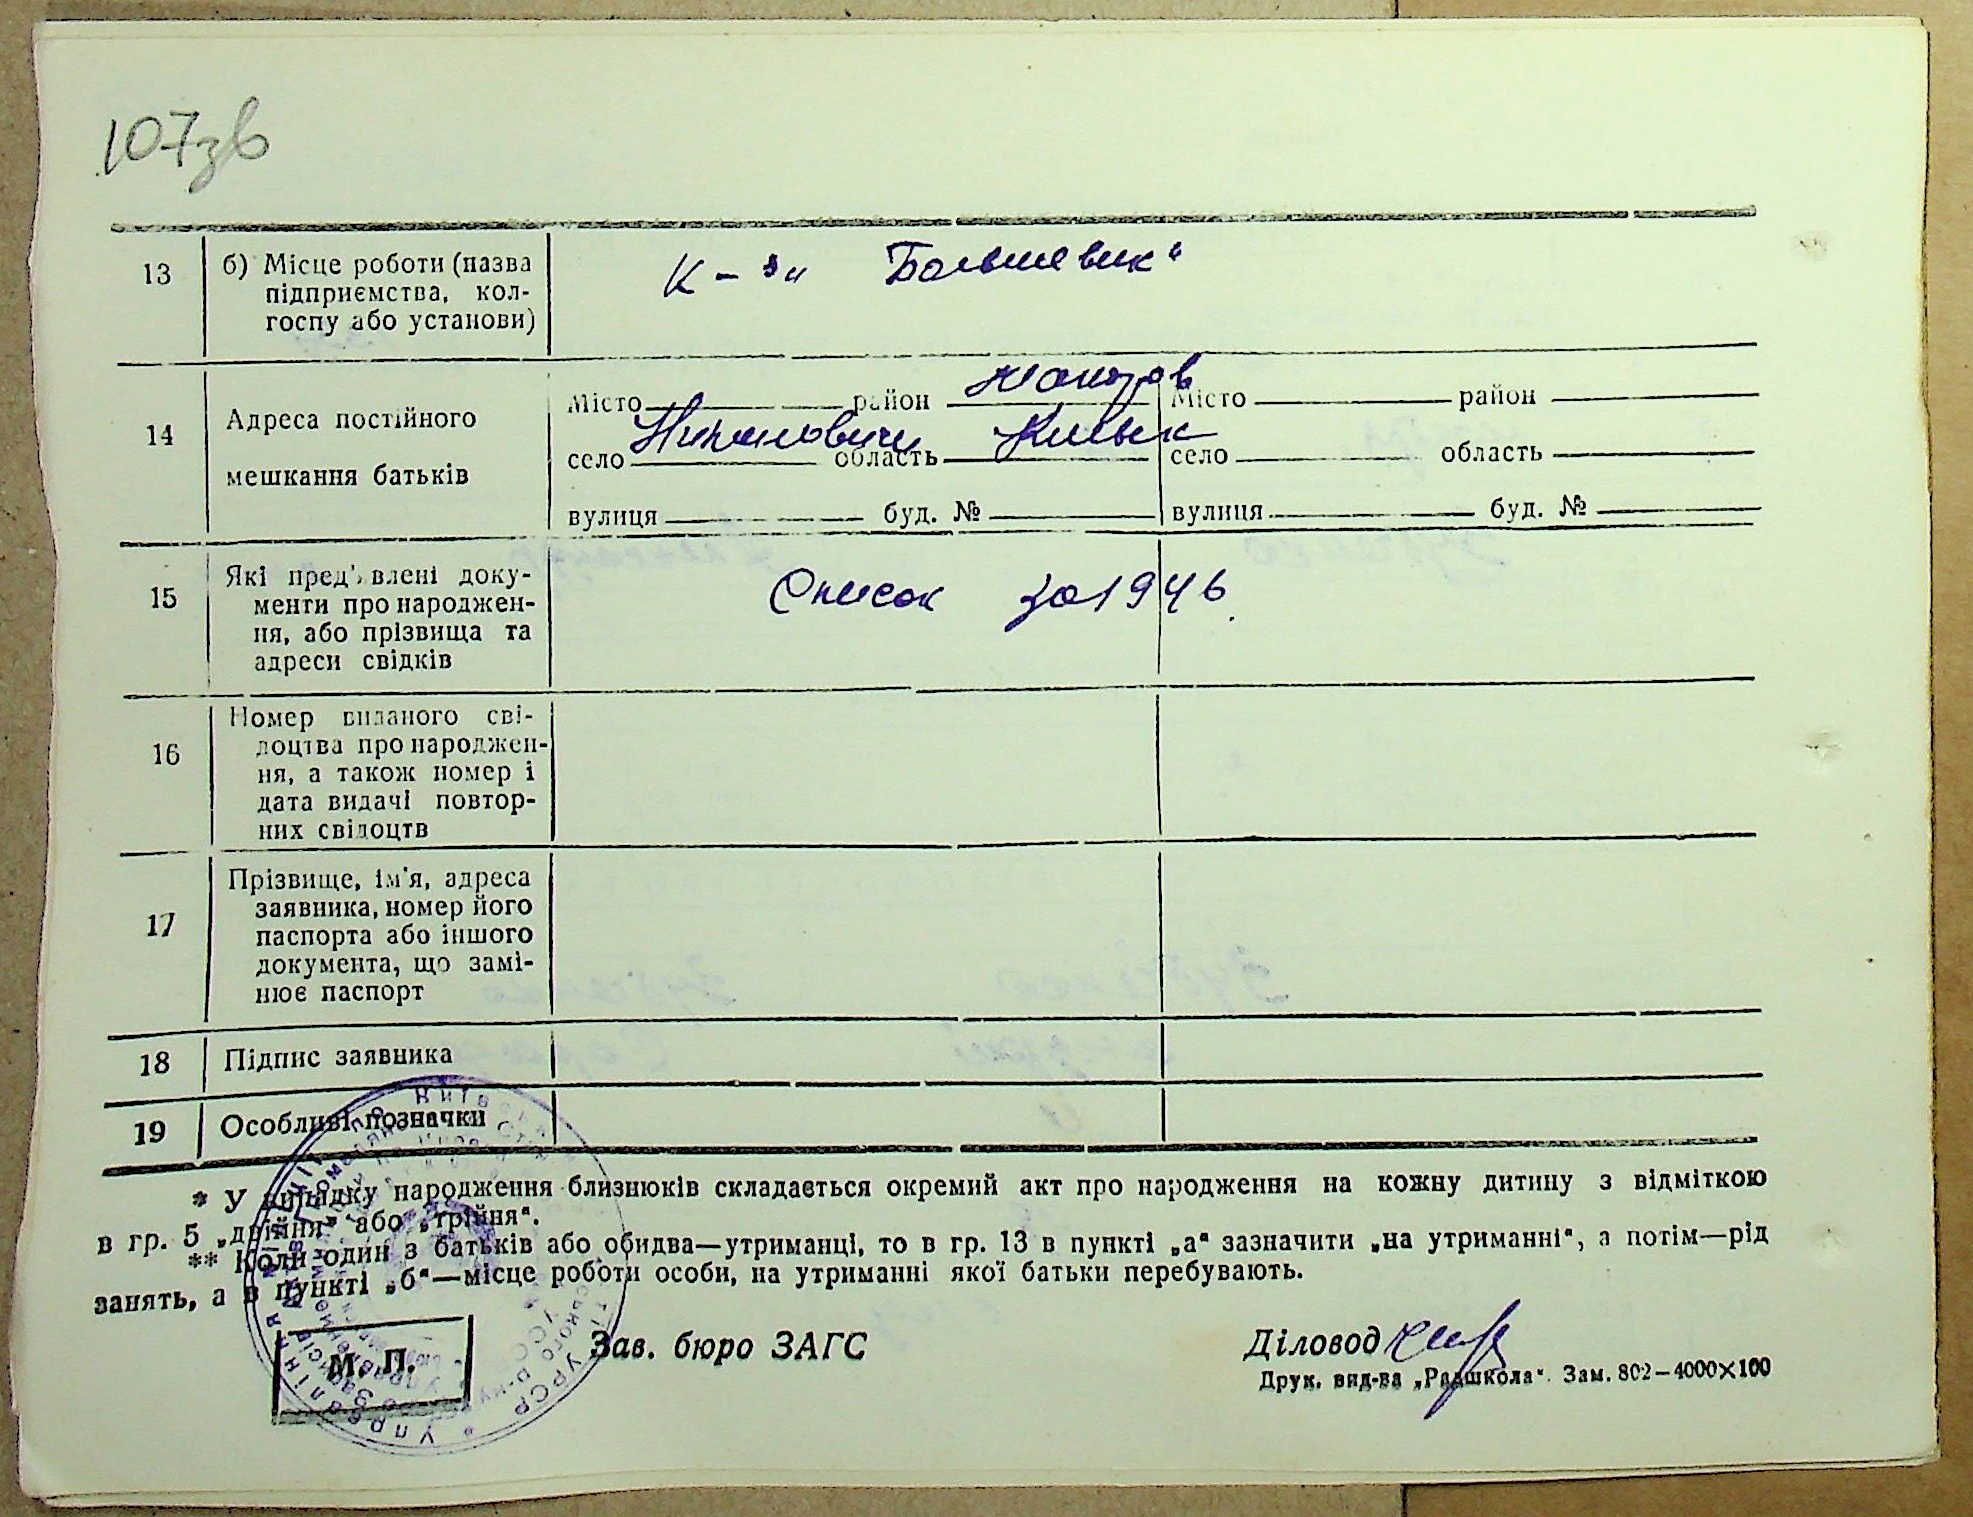 107зв
13 б) Місце роботи (назва
підприємства, кол-
госпу або установи)
К-з „Большевик"
14 Адреса постійного
мешкання батьків
Місто район Макаров
село Ниполовичи область Київськ
вулиця буд. №
Місто район
село область
вулиця буд. №
15 Які пред'явлені доку-
менти про народжен-
ня, або прізвища та
адреси свідків
Список за 1946
16 Номер виданого сві-
доцтва про народжен-
ня, а також номер і
дата видачі повтор-
них свідоцтв
17 Прізвище, ім'я, адреса
заявника, номер його
паспорта або іншого
документа, що замі-
нює паспорт
18 Підпис заявника
19 Особливі позначки
* У випадку народження близнюків складається окремий акт про народження на кожну дитину з відміткою
в гр. 5 „двійня" або „трійня".
** Коли один з батьків або обидва—утриманці, то в гр. 13 в пункті „а" зазначити „на утриманні", а потім—рід
занять, а в пункті „б"—місце роботи особи, на утриманні якої батьки перебувають.
М. П.
Зав. бюро ЗАГС
Діловод
Друк. вид-ва „Радшкола". Зам. 802—4000×100